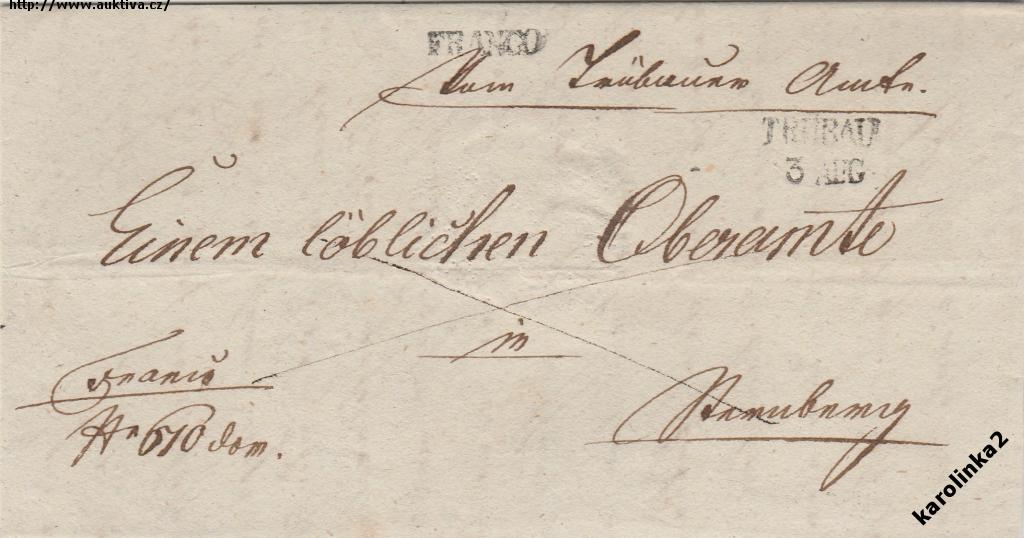 http://www.auktiva.cz/
FRANCO
Vom Trübauer Amte.
TRÜBAU
3 AUG
Einem löblichen Oberamte
in
Sternberg
Franco
Nr 670 dom.
karolinka2